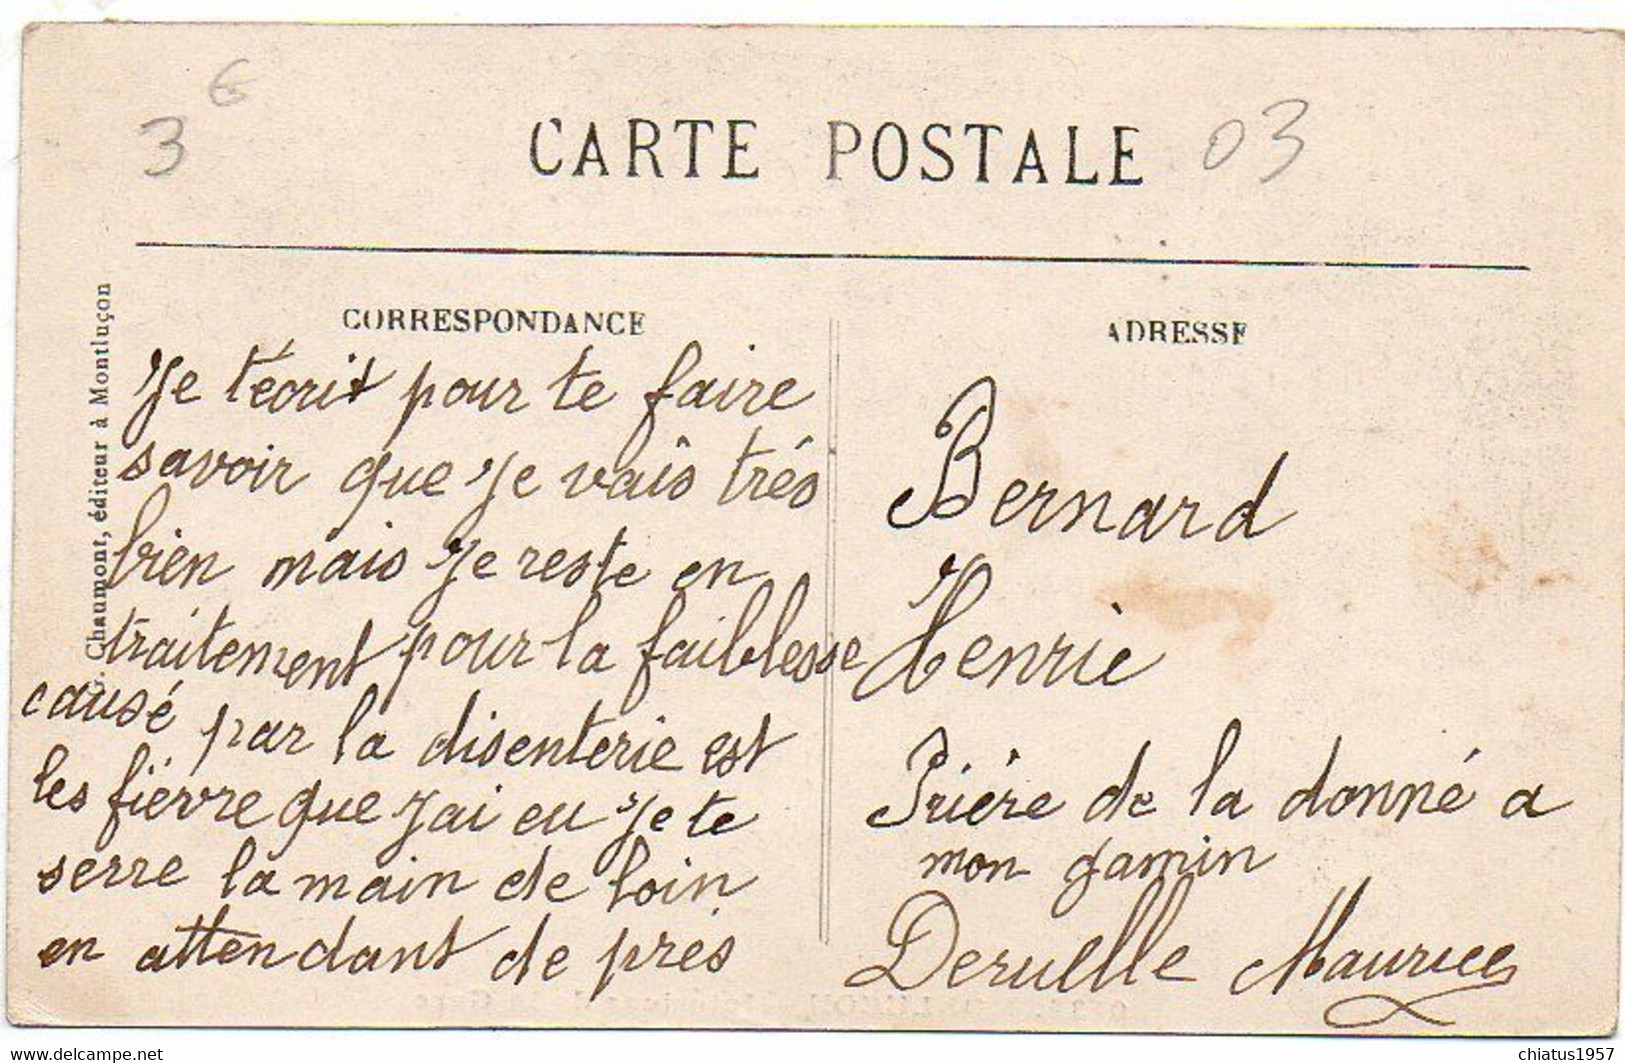 3 €
CARTE POSTALE 03
CORRESPONDANCE
G. Chaumont, éditeur à Montluçon
Je t'écrit pour te faire
savoir que je vais trés
bien mais je reste en
traitement pour la faiblesse
causé par la disenterie est
les fièvre que j'ai eu je te
serre la main de loin
en attendant de près
ADRESSE
Bernard
Henrie
Prière de la donné a
mon gamin
Deruelle Maurice
www.delcampe.net
chiatus1957